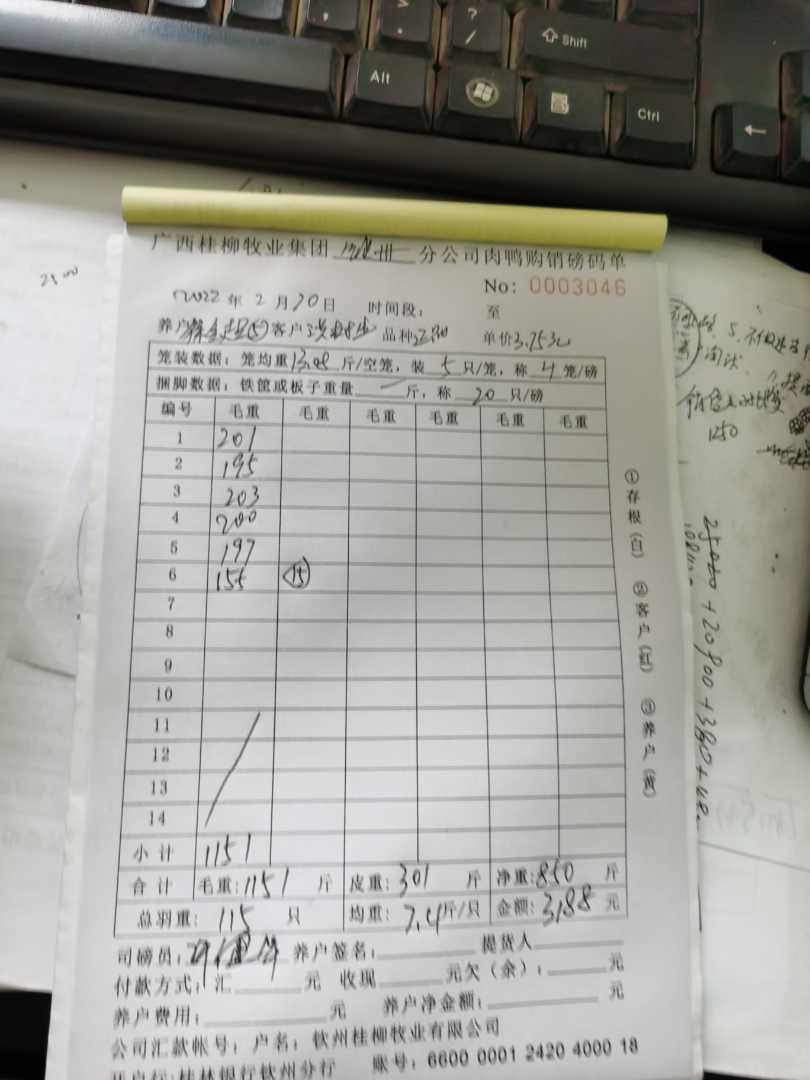 Shift
Alt
Ctrl
广西桂柳牧业集团 分公司肉鸭购销磅码单
No: 0003046
2022 年 2 月 20 日 时间段: 至
养户 客户 品种 单价3.75元
笼装数据: 笼均重13.08斤/空笼, 装 5 只/笼, 称 4 笼/磅
捆脚数据: 铁筐或板子重量 一 斤, 称 20 只/磅
编号 毛重 毛重 毛重 毛重 毛重 毛重
1 201
2 195
3 203
4 200
5 197
6 155 15
7
8
9
10
11
12
13
14
小计 1151
合计 毛重:1151 斤 皮重:301 斤 净重:850 斤
总羽重: 115 只 均重: 7.4斤/只 金额:3188 元
司磅员: 养户签名: 提货人
付款方式: 汇 元 收现 元欠(余): 元
养户费用: 元 养户净金额: 元
公司汇款帐号: 户名: 钦州桂柳牧业有限公司
开户行:桂林银行钦州分行 账号: 6600 0001 2420 4000 18
①存根(白) ②客户(红) ③养户(黄)
1250